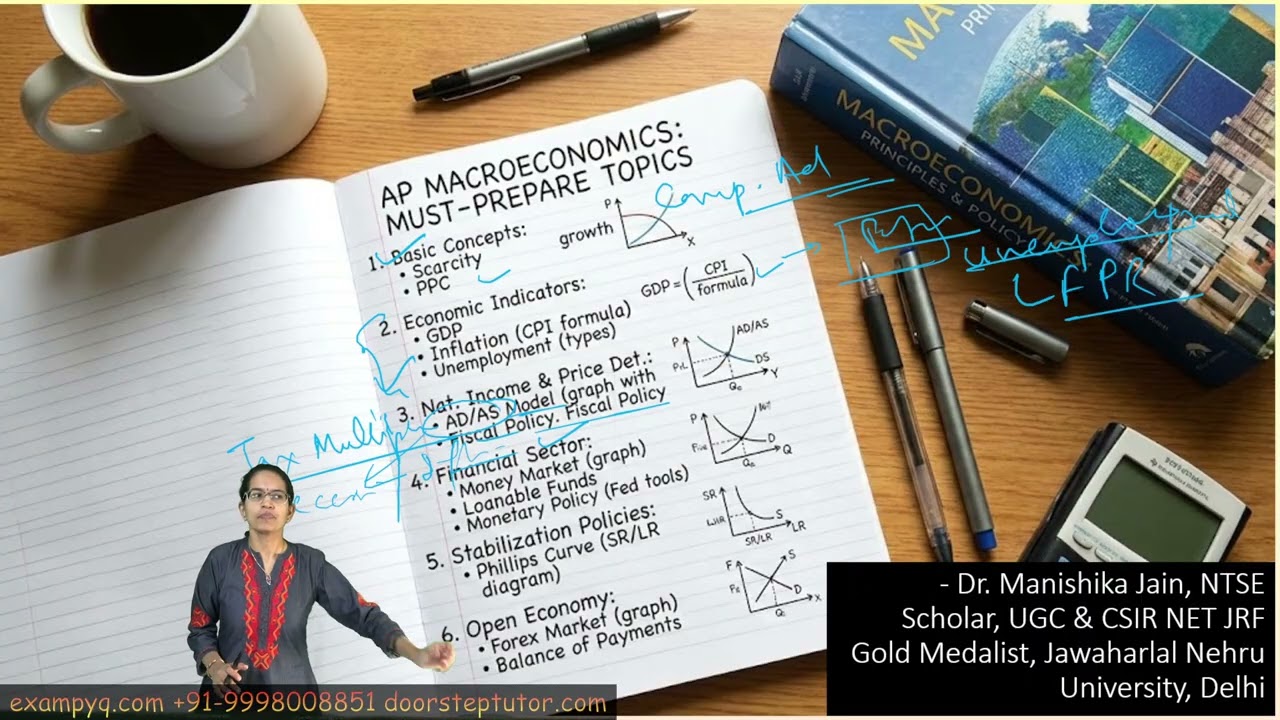 AP MACROECONOMICS:
MUST-PREPARE TOPICS
1. Basic Concepts:
• Scarcity
• PPC
growth
P
X
Comp. Ad
2. Economic Indicators:
• GDP
• Inflation (CPI formula)
• Unemployment (types)
GDP = (CPI / formula)
Unemployment
LFPR
3. Nat. Income & Price Det.:
• AD/AS Model (graph with
• Fiscal Policy. Fiscal Policy
P
AD/AS
DS
Y
Tax Multiplier
4. Financial Sector:
• Money Market (graph)
• Loanable Funds
• Monetary Policy (Fed tools)
P
D
Q
5. Stabilization Policies:
• Phillips Curve (SR/LR
diagram)
SR
S
LR
SR/LR
6. Open Economy:
• Forex Market (graph)
• Balance of Payments
F
S
D
X
MACROECONOMICS
PRINCIPLES & POLICY
- Dr. Manishika Jain, NTSE
Scholar, UGC & CSIR NET JRF
Gold Medalist, Jawaharlal Nehru
University, Delhi
exampyq.com +91-9998008851 doorsteptutor.com